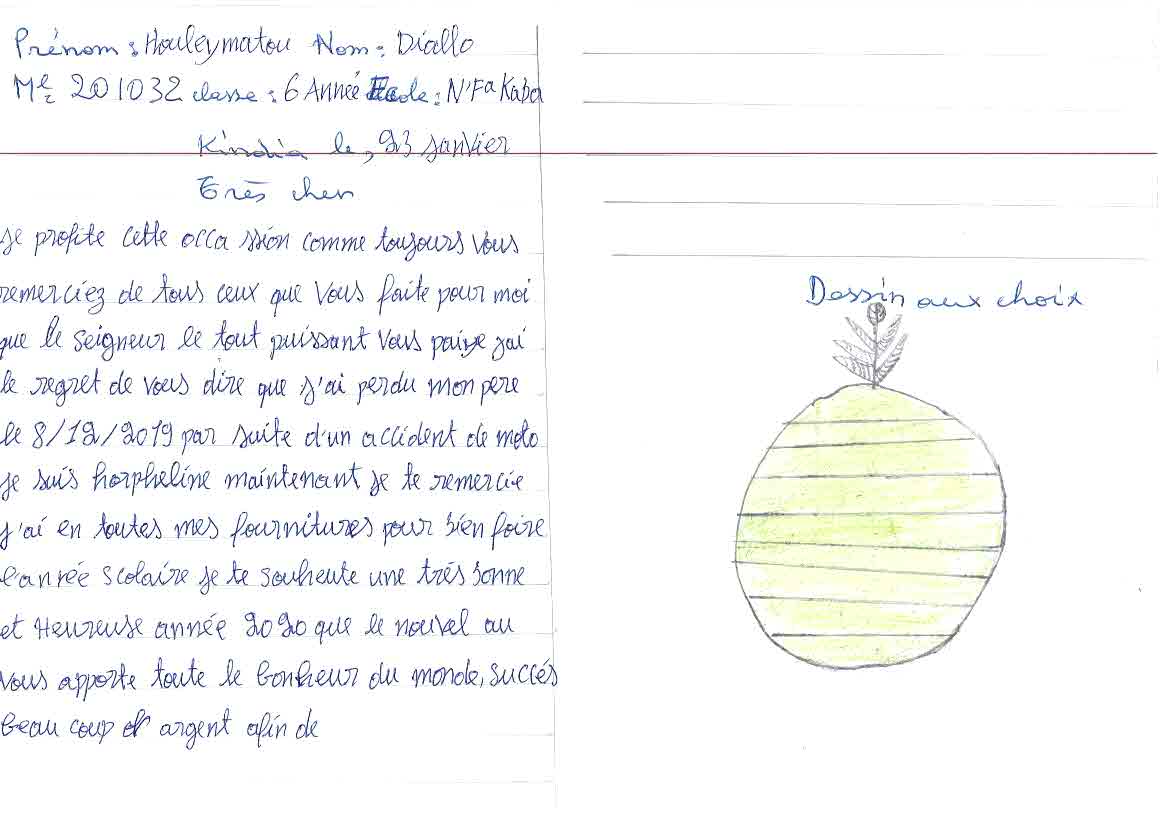 Prénom : Houleymatou Nom : Diallo
Mle 201032 classe : 6 Année Ecole : N'Fa Kaba
Kindia le, 23 janvier
Très cher
je profite cette occa ssion comme toujours vous
remerciez de tous ceux que vous faite pour moi
que le seigneur le tout puissant vous paixe jai
le regret de vous dire que j'ai perdu mon pere
le 8/12/2019 par suite d'un accident de moto
je suis horpheline maintenant je te remercie
j'ai en toutes mes fournitures pour bien faire
l'année scolaire je te souheute une très bonne
et Heureuse année 2020 que le nouvel au
vous apporte toute le bonheur du monde, succés
beau coup d' argent afin de
Dessin aux choix